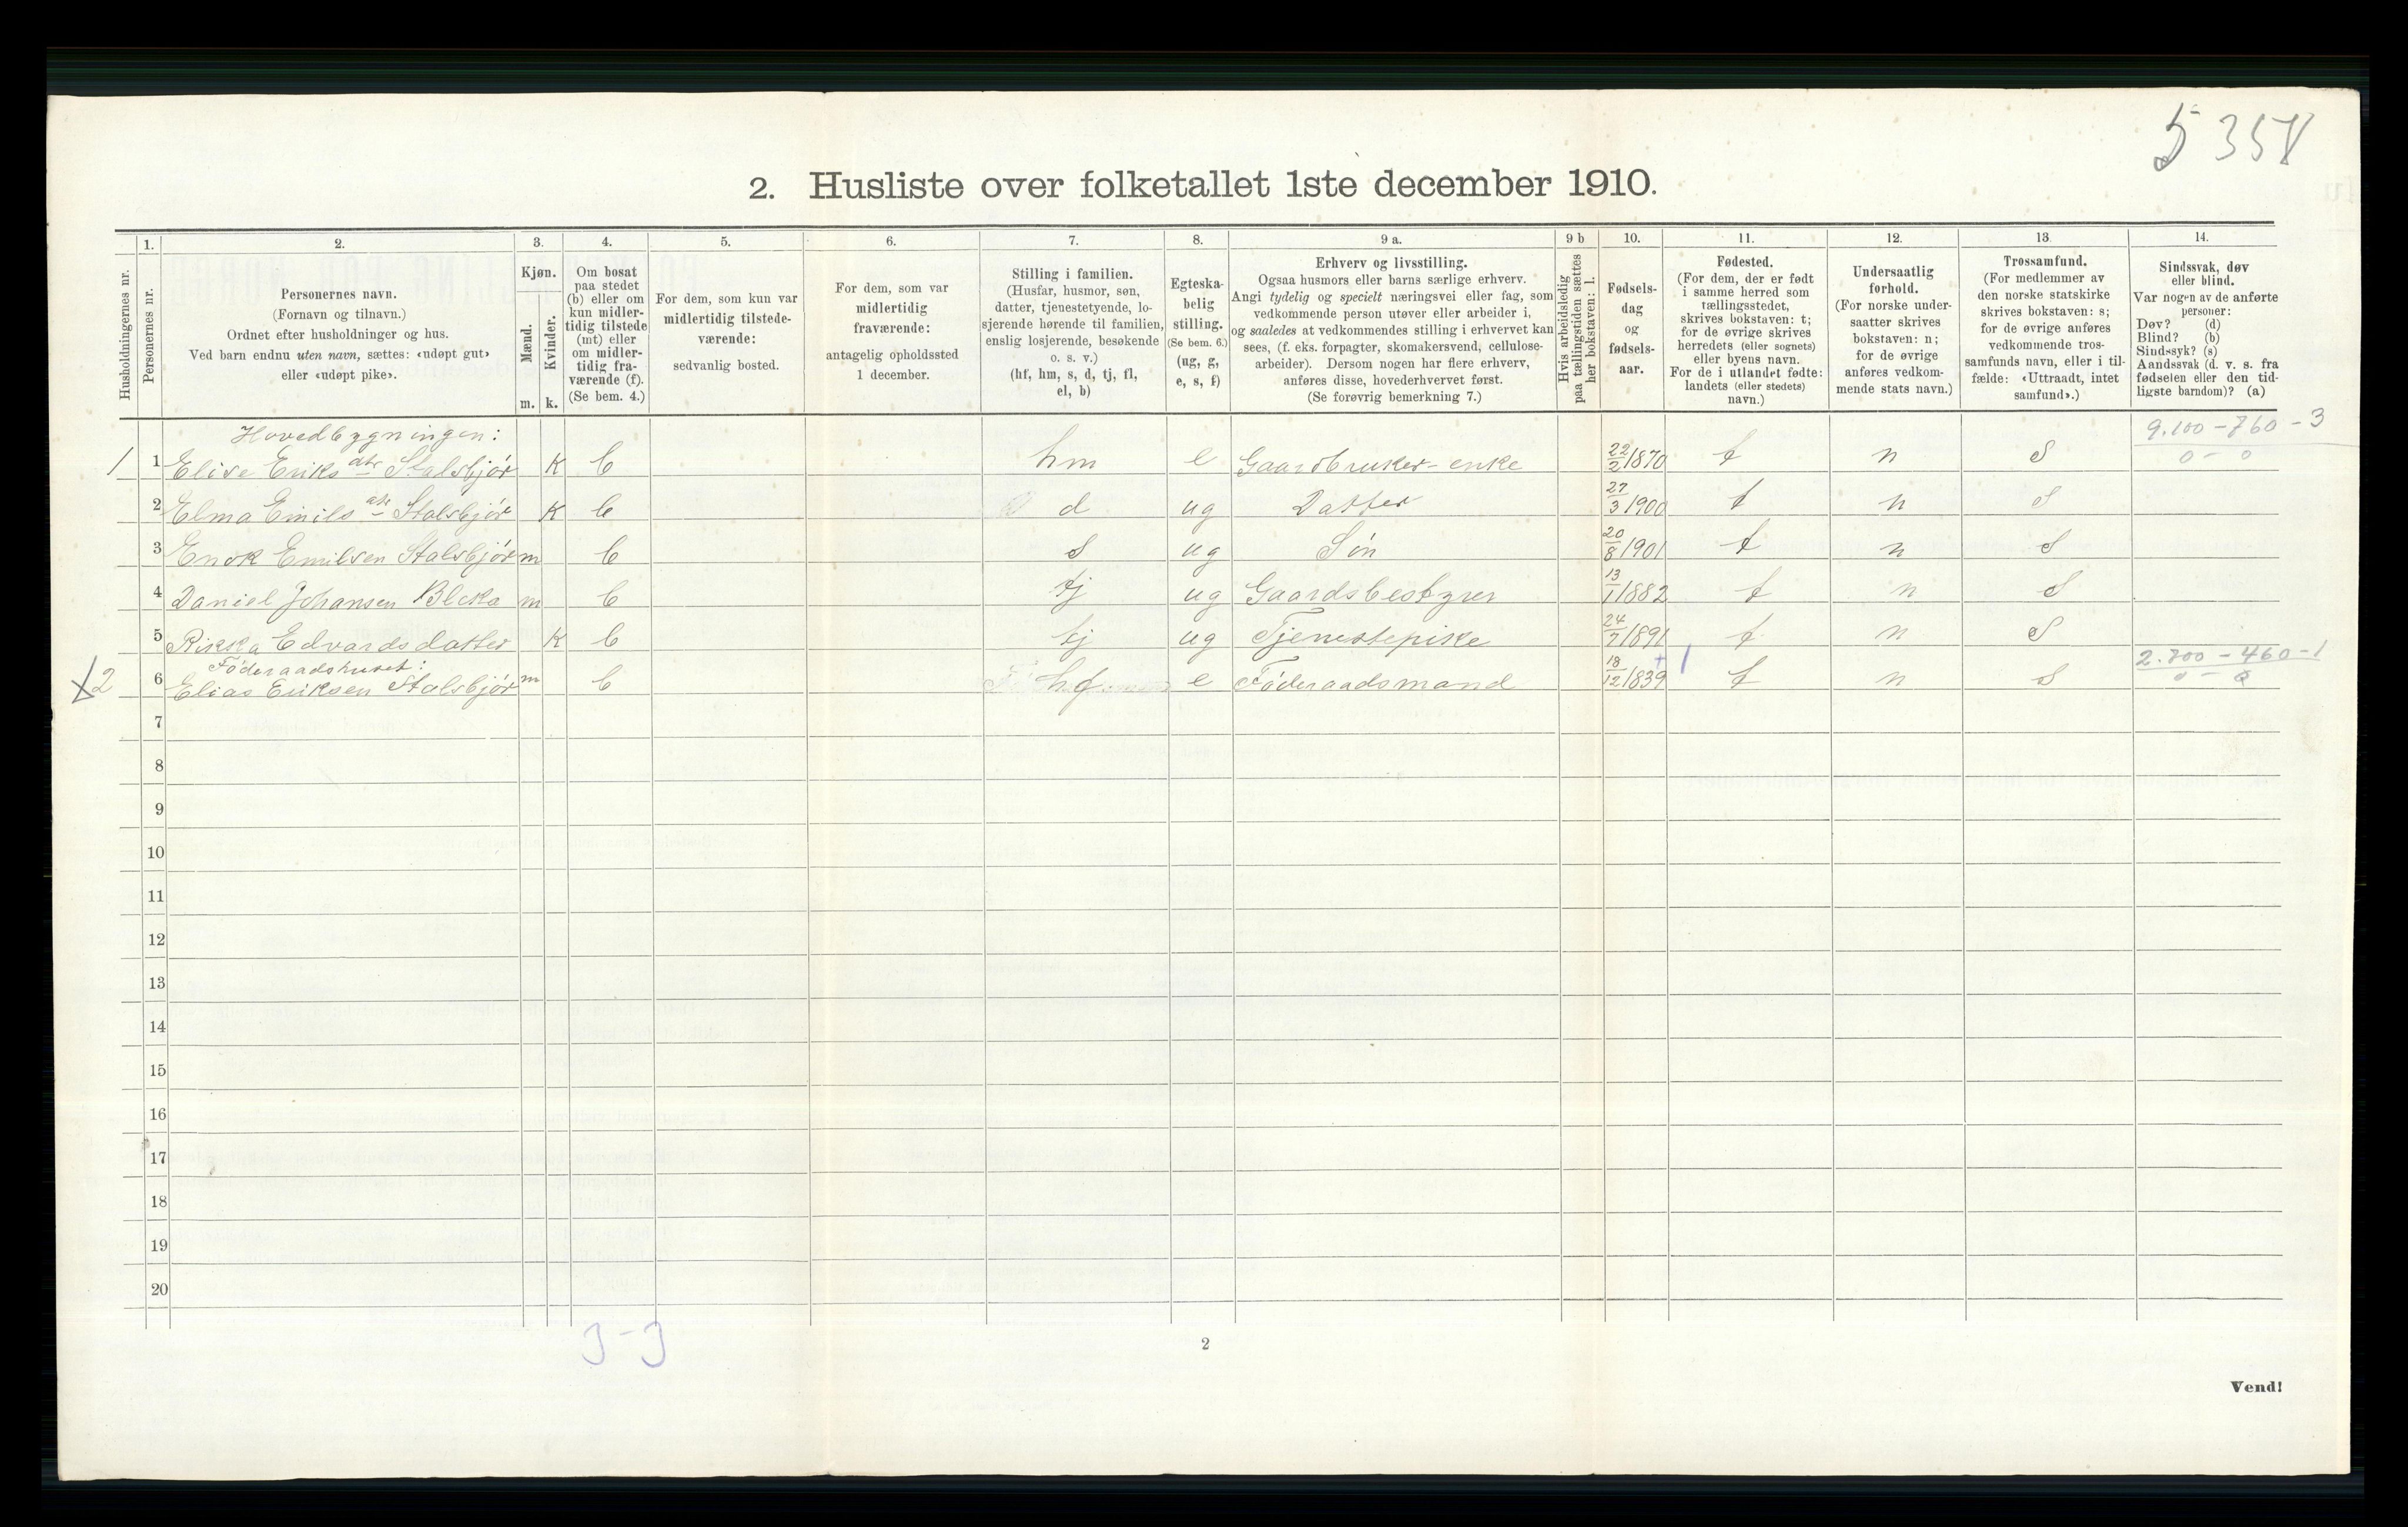 5 358
2. Husliste over folketallet 1ste december 1910.
Husholdningernes nr.
1.
Personernes nr.
2.
Personernes navn.
(Fornavn og tilnavn.)
Ordnet efter husholdninger og hus.
Ved barn endnu uten navn, sættes: «udøpt gut»
eller «udøpt pike».
3.
Kjøn.
Mænd.
Kvinder.
m. k.
4.
Om bosat
paa stedet
(b) eller om
kun midler-
tidig tilstede
(mt) eller
om midler-
tidig fra-
værende (f).
(Se bem. 4.)
5.
For dem, som kun var
midlertidig tilstede-
værende:
sedvanlig bosted.
6.
For dem, som var
midlertidig
fraværende:
antagelig opholdssted
1 december.
7.
Stilling i familien.
(Husfar, husmor, søn,
datter, tjenestetyende, lo-
sjerende hørende til familien,
enslig losjerende, besøkende
o. s. v.)
(hf, hm, s, d, tj, fl,
el, b)
8.
Egteska-
belig
stilling.
(Se bem. 6.)
(ug, g,
e, s, f)
9 a.
Erhverv og livsstilling.
Ogsaa husmors eller barns særlige erhverv.
Angi tydelig og specielt næringsvei eller fag, som
vedkommende person utøver eller arbeider i,
og saaledes at vedkommendes stilling i erhvervet kan
sees, (f. eks. forpagter, skomakersvend, cellulose-
arbeider). Dersom nogen har flere erhverv,
anføres disse, hovederhvervet først.
(Se forøvrig bemerkning 7.)
9 b
Hvis arbeidsledig
paa tællingstiden sættes
her bokstaven: l.
10.
Fødsels-
dag
og
fødsels-
aar.
11.
Fødested.
(For dem, der er født
i samme herred som
tællingsstedet,
skrives bokstaven: t;
for de øvrige skrives
herredets (eller sognets)
eller byens navn.
For de i utlandet fødte:
landets (eller stedets)
navn.)
12.
Undersaatlig
forhold.
(For norske under-
saatter skrives
bokstaven: n;
for de øvrige
anføres vedkom-
mende stats navn.)
13.
Trossamfund.
(For medlemmer av
den norske statskirke
skrives bokstaven: s;
for de øvrige anføres
vedkommende tros-
samfunds navn, eller i til-
fælde: «Uttraadt, intet
samfund».)
14.
Sindssvak, døv
eller blind.
Var nogen av de anførte
personer:
Døv? (d)
Blind? (b)
Sindssyk? (s)
Aandssvak (d. v. s. fra
fødselen eller den tid-
ligste barndom)? (a)
Hovedbygningen: 9.100 - 760 - 3
1 1 Elise Eriks dtr Stalsbjör K b hm e Gaardbruker-enke 22/2 1870 t n s 0 - 0
2 Elma Emils dtr Stalsbjör K b d ug Datter 27/3 1900 t n s
3 Enok Emilsen Stalsbjör m b s ug Sön 20/8 1901 t n s
4 Daniel Johansen Bleka m b tj ug Gaardsbestyrer 13/1 1882 t n s
5 Rikka Edvardsdatter K b tj ug Tjenestepike 24/7 1891 t n s
Föderaadshuset: 2.700 - 460 - 1
2 6 Elias Eriksen Stalsbjör m b hf e Föderaadsmand 18/12 1839 t n s 0 - 0
7
8
9
10
11
12
13
14
15
16
17
18
19
20
3 - 3
2
Vend!